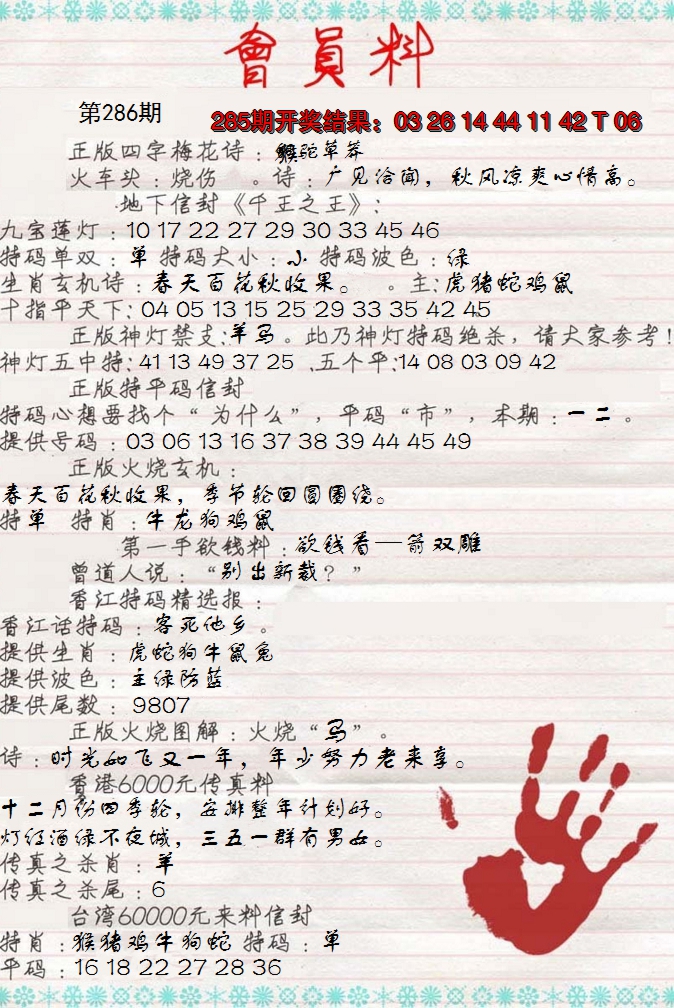 會員料
第286期
285期开奖结果：03 26 14 44 11 42 T 06
正版四字梅花诗：猴驼草莽
火车头：烧伤 。诗：广见洽闻，秋风凉爽心情高。
地下信封《千王之王》：
九宝莲灯：10 17 22 27 29 30 33 45 46
特码单双：单 特码大小：小 特码波色：绿
生肖玄机诗：春天百花秋收果。 。主：虎猪蛇鸡鼠
十指平天下：04 05 13 15 25 29 33 35 42 45
正版神灯禁支：羊马。此乃神灯特码绝杀，请大家参考！
神灯五中特：41 13 49 37 25 .五个平：14 08 03 09 42
正版特平码信封
特码心想要找个“为什么”，平码“市”，本期：一二。
提供号码：03 06 13 16 37 38 39 44 45 49
正版火烧玄机：
春天百花秋收果，季节轮回圆圈绕。
特单 特肖：牛龙狗鸡鼠
第一手欲钱料：欲钱看一箭双雕
曾道人说：“别出新裁？”
香江特码精选报：
香江话特码：客死他乡。
提供生肖：虎蛇狗牛鼠兔
提供波色：主绿防蓝
提供尾数：9807
正版火烧图解：火烧“马”。
诗：时光如飞又一年，年少努力老来享。
香港6000元传真料
十二月份四季轮，安排整年计划好。
灯红酒绿不夜城，三五一群有男女。
传真之杀肖：羊
传真之杀尾：6
台湾60000元来料信封
特肖：猴猪鸡牛狗蛇 特码：单
平码：16 18 22 27 28 36